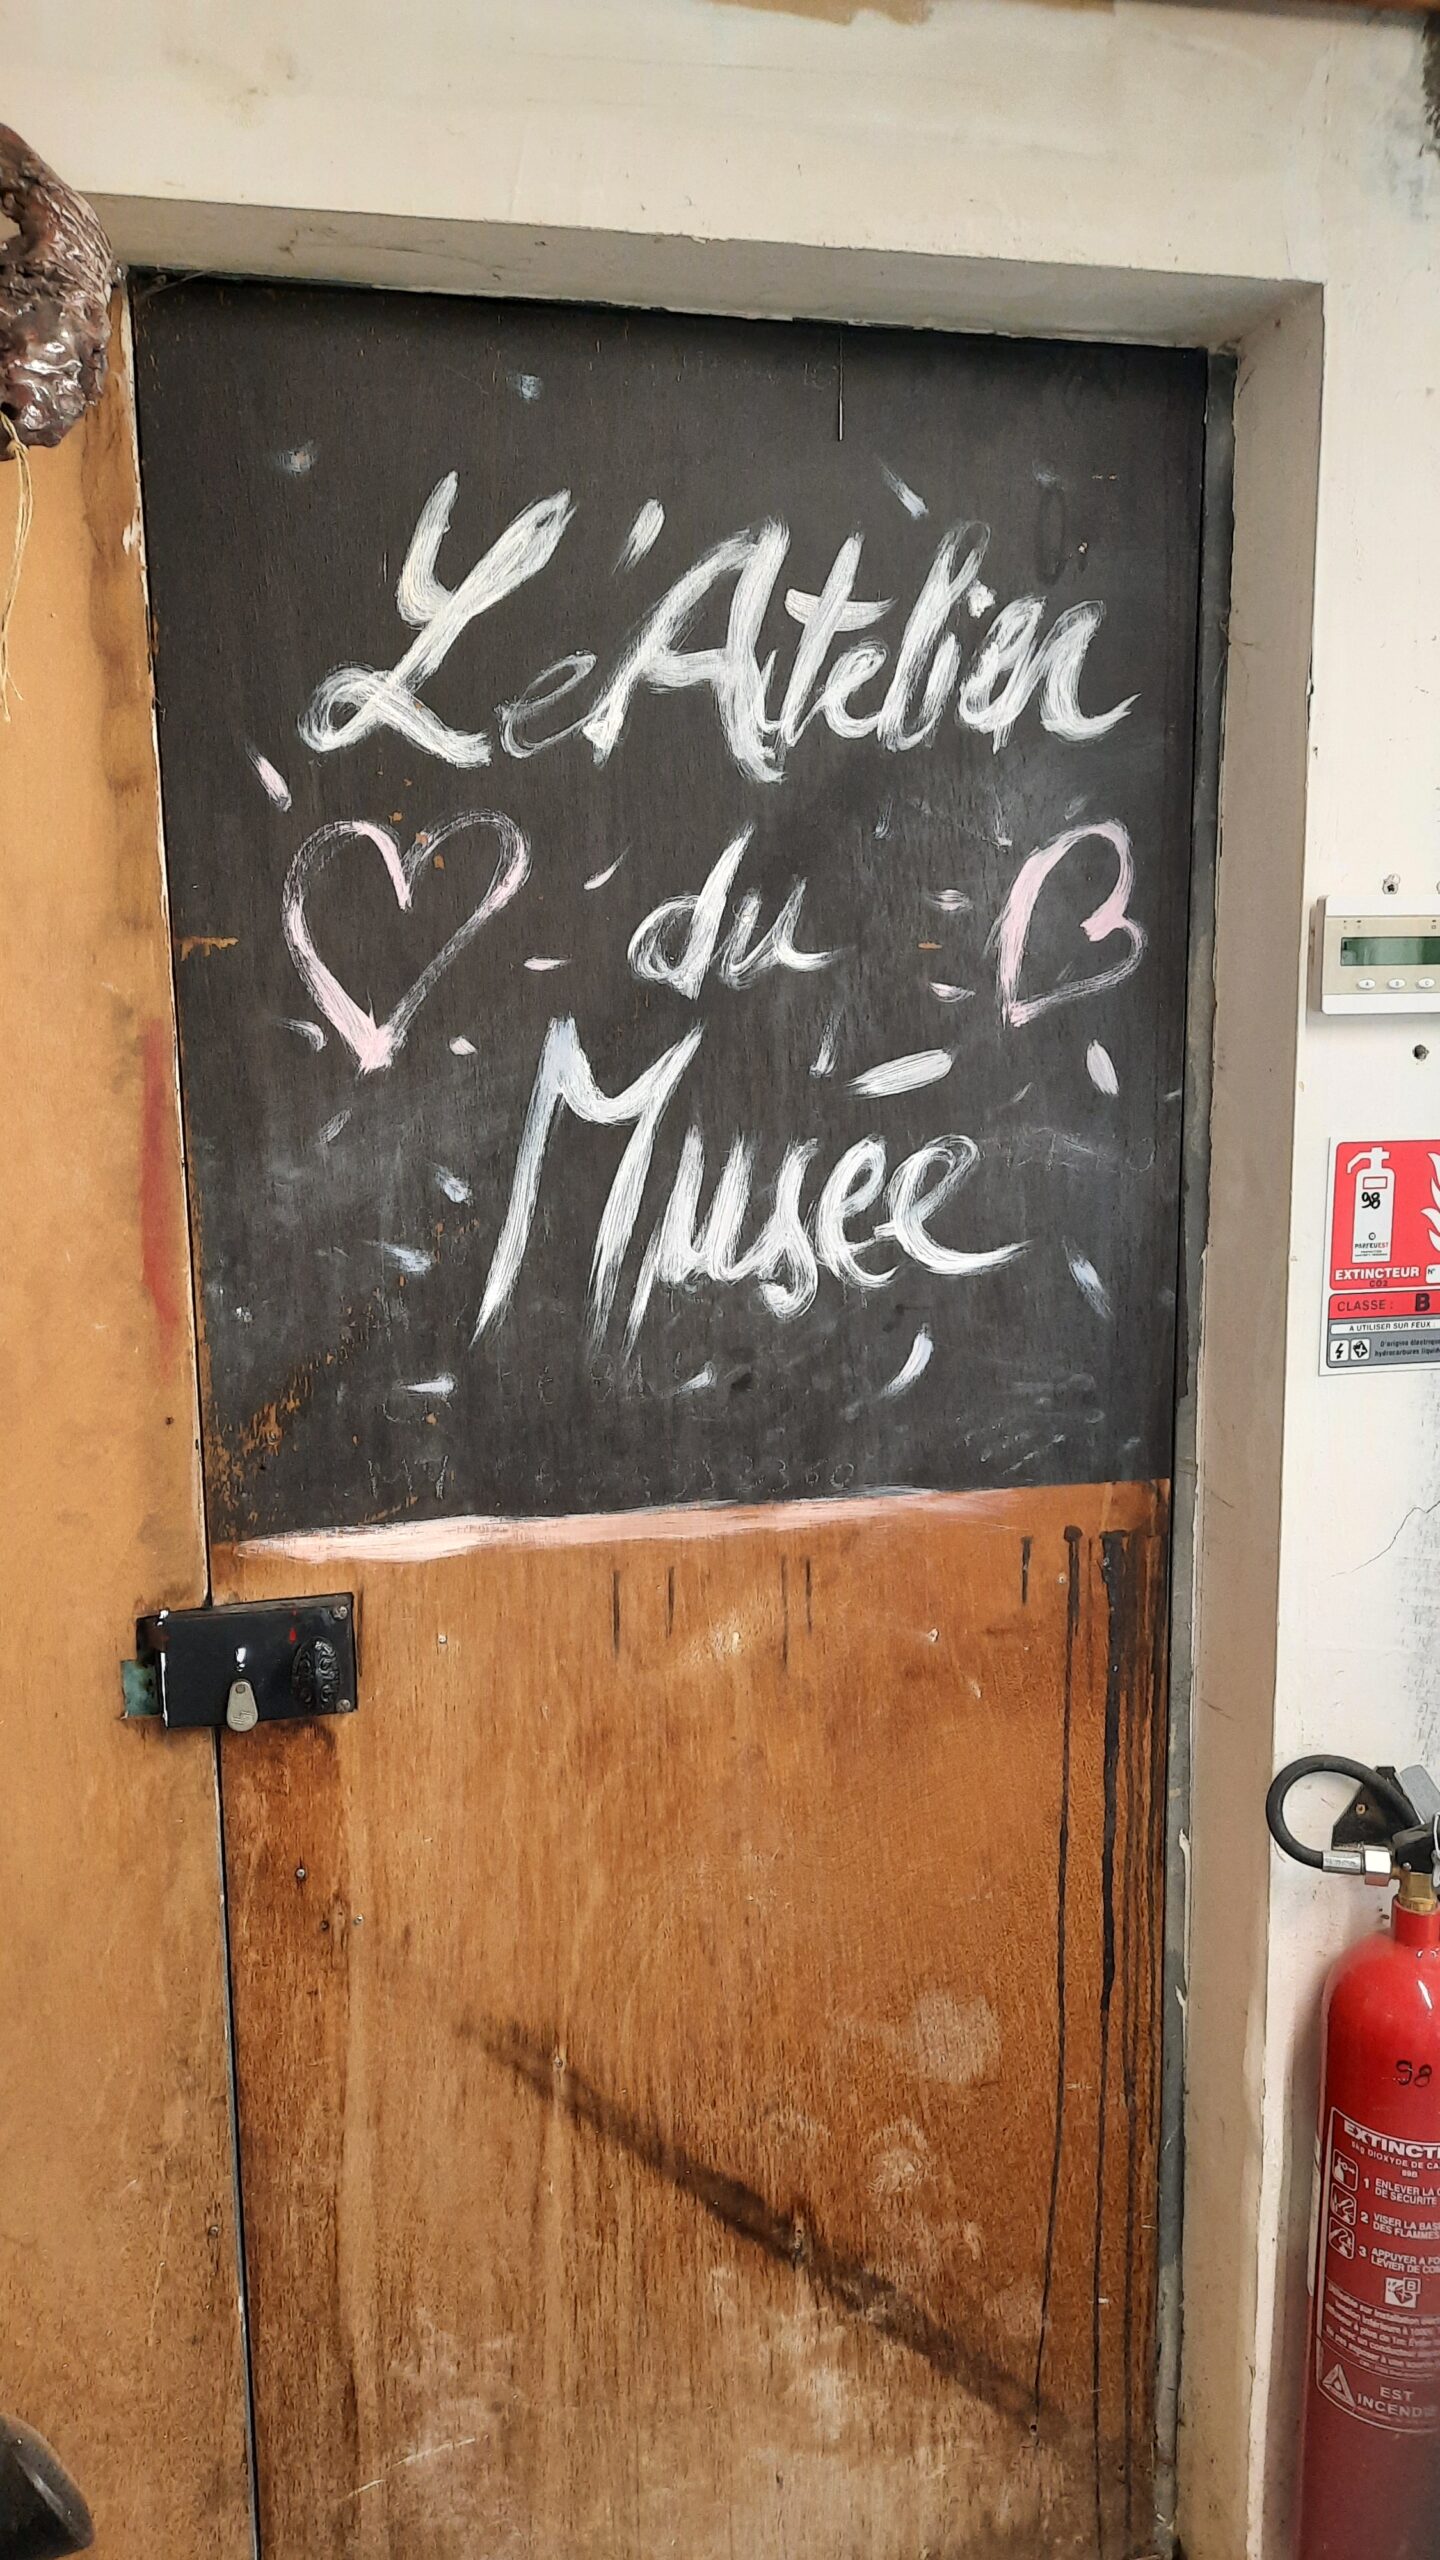 L'Atelier
du
Musée
98
PARFEUEST
EXTINCTEUR N°
CO2
CLASSE : B
A UTILISER SUR FEUX :
D'origine électrique
hydrocarbures liquides
98
EXTINCT
5kg DIOXYDE DE CA
89B
1 ENLEVER LA
DE SECURITE
2 VISER LA BAS
DES FLAMMES
3 APPUYER A FO
LEVIER DE CO
B
EST
INCENDIE